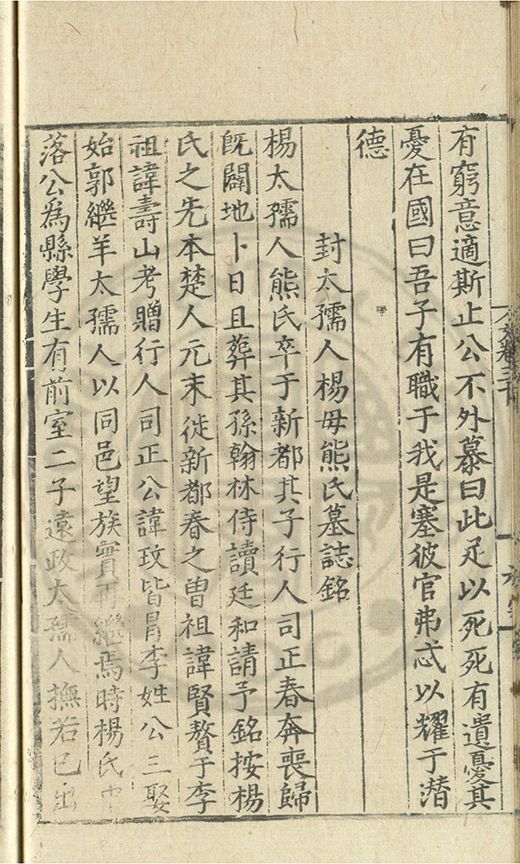 有窮意適斯止公不外慕曰此足以死死有遺憂其
憂在國曰吾子有職于我是塞彼官弗忒以耀于潛
德
封太孺人楊母熊氏墓誌銘
楊太孺人熊氏卒于新都其子行人司正春奔喪歸
旣闢地卜日且葬其孫翰林侍讀廷和請予銘按楊
氏之先本楚人元末徙新都春之曽祖諱賢贅于李
祖諱壽山考贈行人司正公諱玟皆冐李姓公三娶
始郭繼羊太孺人以同邑望族實再繼焉時楊氏中
落公爲縣學生有前室二子遠政太孺人撫若已出